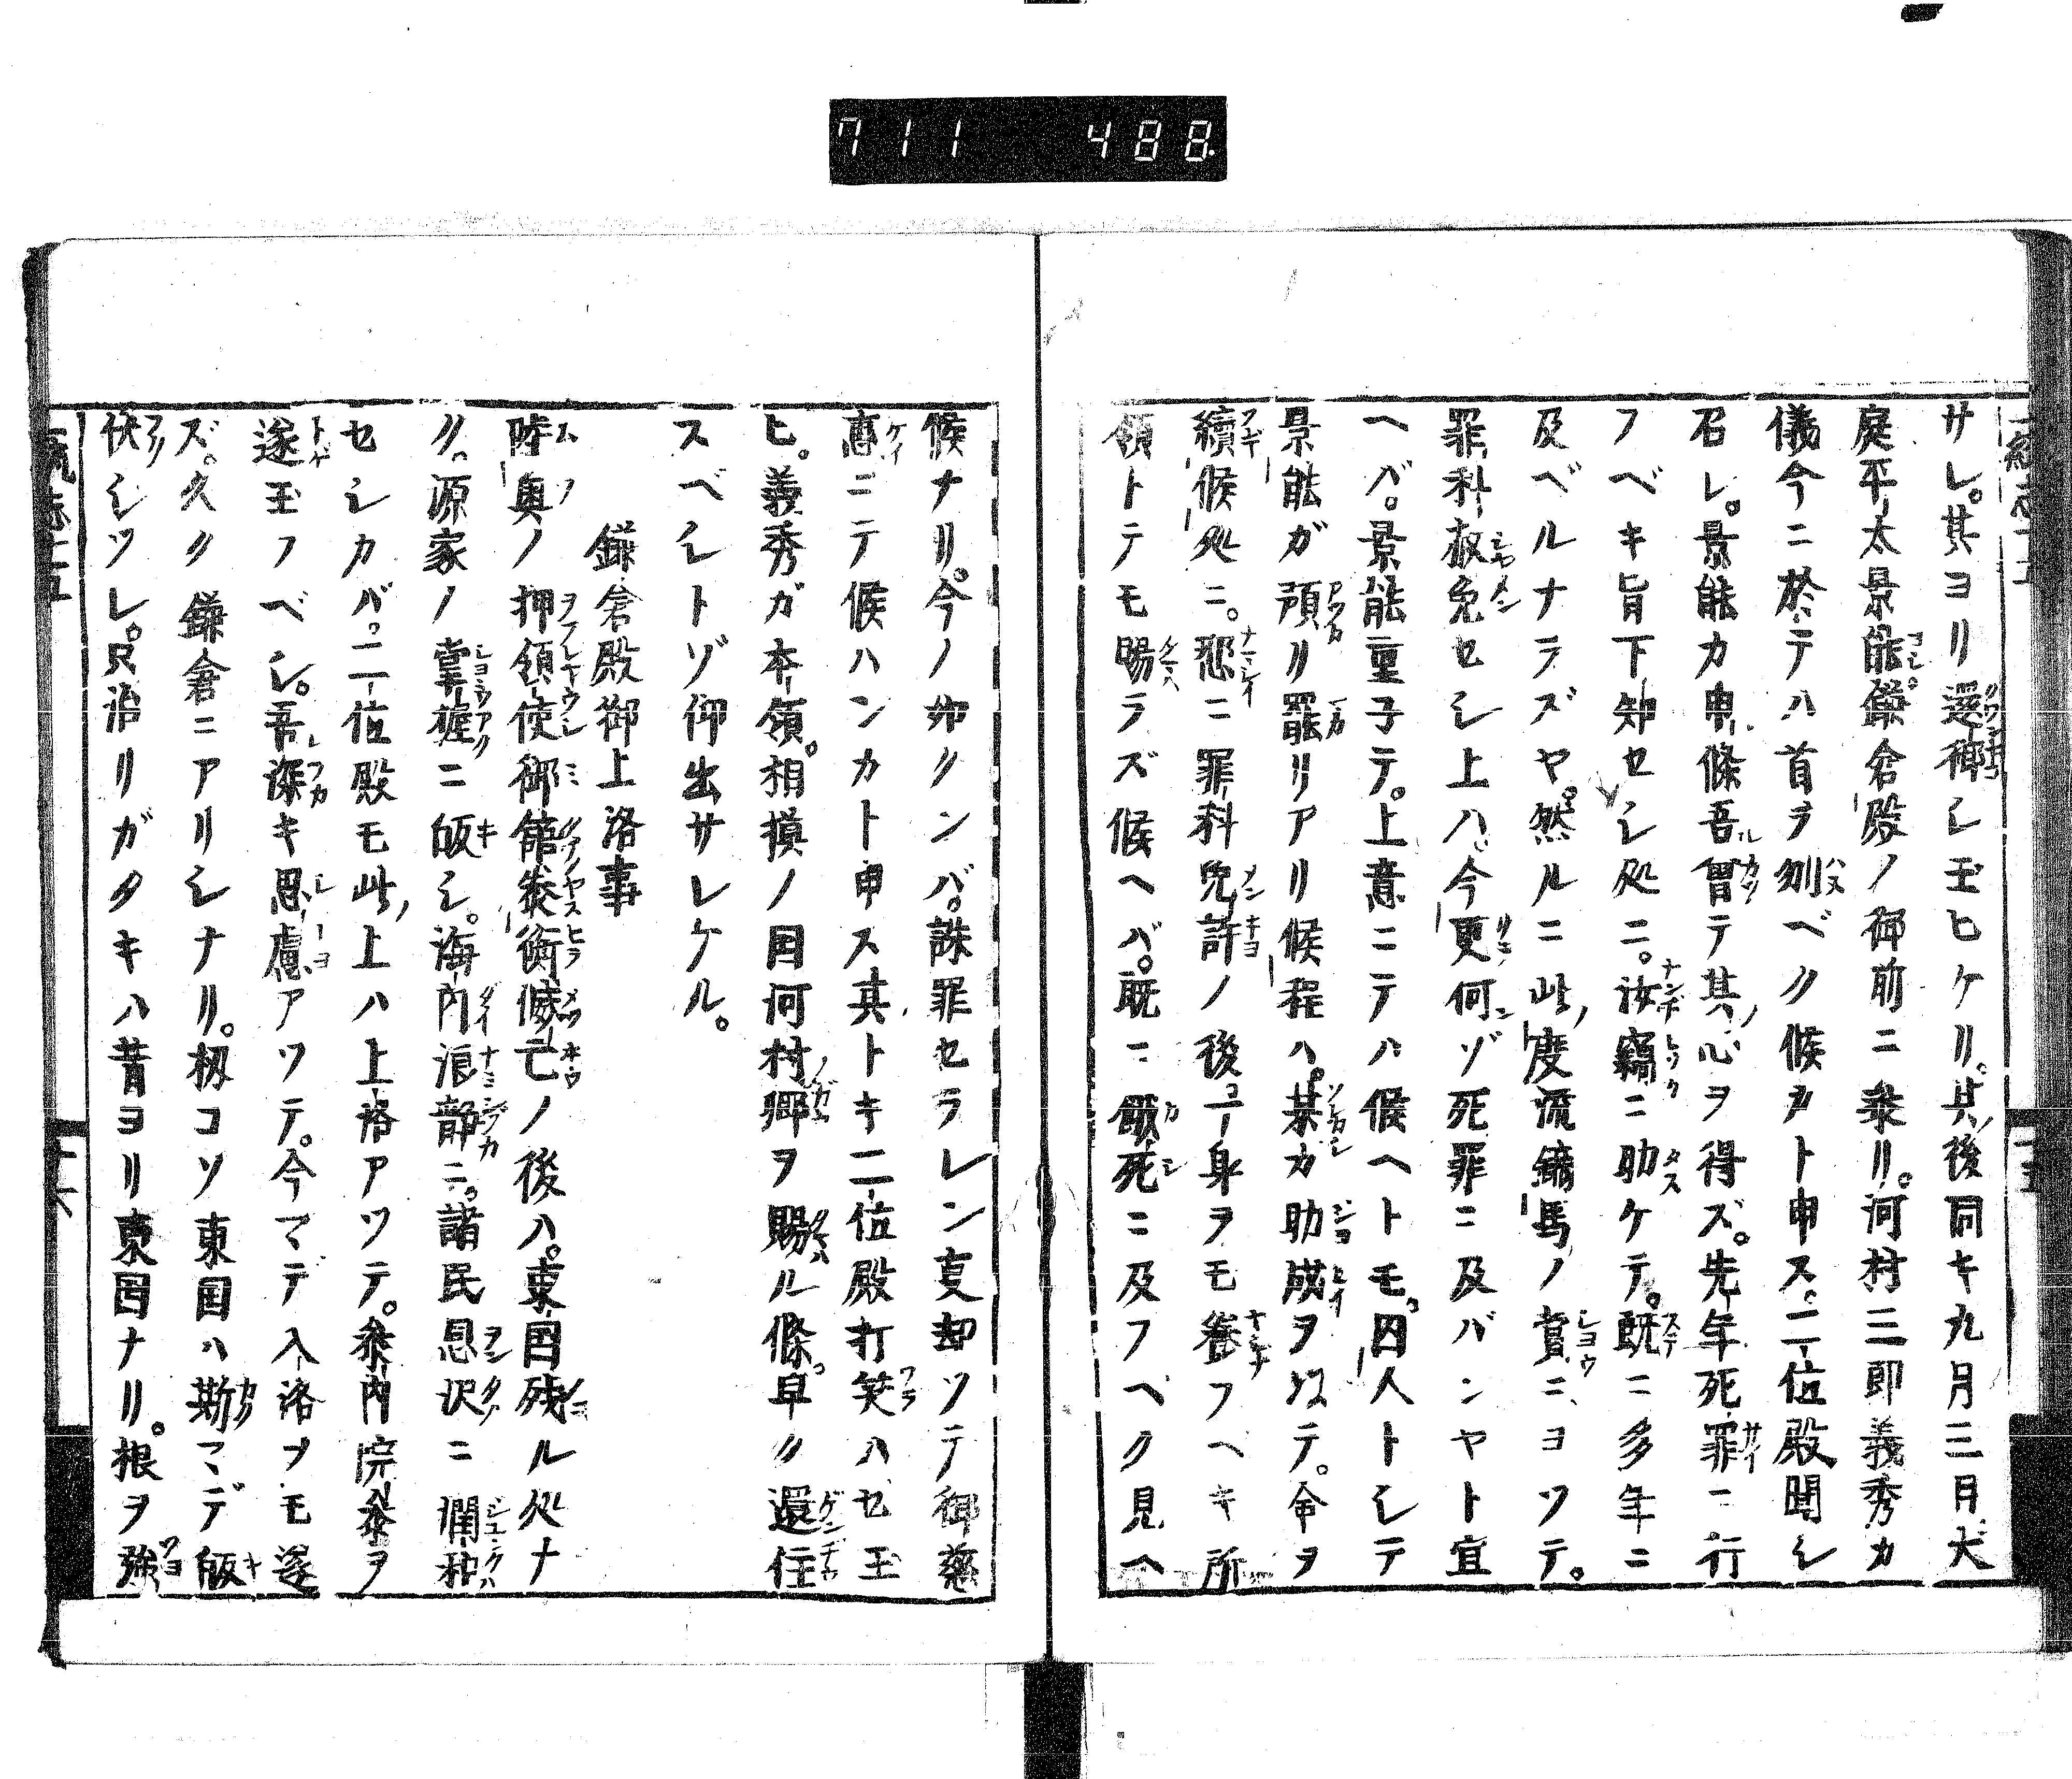 711 488.
サレ。其ヨリ還御シ玉ヒケリ。其後同キ九月三日。大
庭平太景能鎌倉殿ノ御前ニ参リ。河村三郎義秀カ
儀今ニ於テハ首ヲ刎ベク候カト申ス。二位殿聞シ
召レ。景能カ申條吾曽テ其心ヲ得ズ。先年死罪ニ行
フベキ旨下知セシ処ニ。汝竊ニ助ケテ。既ニ多年ニ
及ベルナラズヤ。然ルニ此度流鏑馬ノ賞ニヨツテ。
罪科赦免セシ上ハ。今更何ゾ死罪ニ及バンヤト宣
ヘバ。景能重子テ。上意ニテハ候ヘトモ。囚人トシテ
景能ガ預リ罷リアリ候程ハ。某カ助成ヲ以テ。命ヲ
續候処ニ。憖ニ罪科免許ノ後一身ヲモ養フヘキ所
領トテモ賜ラズ候ヘバ。既ニ餓死ニ及フヘク見ヘ
候ナリ。今ノ如クンバ。誅罪セラレン叓却ツテ御慈
惠ニテ候ハンカト申ス其トキ二位殿打笑ハセ玉
ヒ。義秀ガ本領。相摸ノ国河村郷ヲ賜ル條。早ク還住
スベシトゾ仰出サレケル。
鎌倉殿御上洛事
陸奥ノ押領使御館泰衡滅亡ノ後ハ。東国残ル処ナ
ク。源家ノ掌握ニ皈シ。海内浪静ニ。諸民恩沢ニ潤和
セシカバ。二位殿モ此上ハ上洛アツテ。参内院参ヲ
遂玉フベシ。吾深キ思慮アツテ。今マデ入洛ヲモ遂
ズ。久ク鎌倉ニアリシナリ。扨コソ東国ハ斯マデ皈
伏シツレ。只治リガタキハ昔ヨリ東国ナリ。根ヲ強